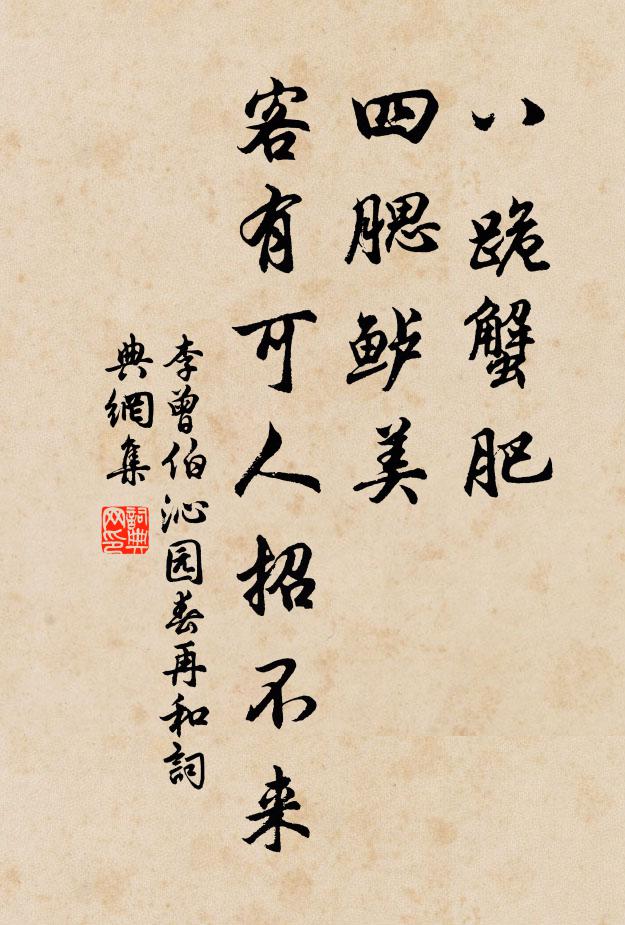 八跪蟹肥
四腮鲈美
客有可人招不来
李曾伯沁园春再和詞
典網集
詞典网印